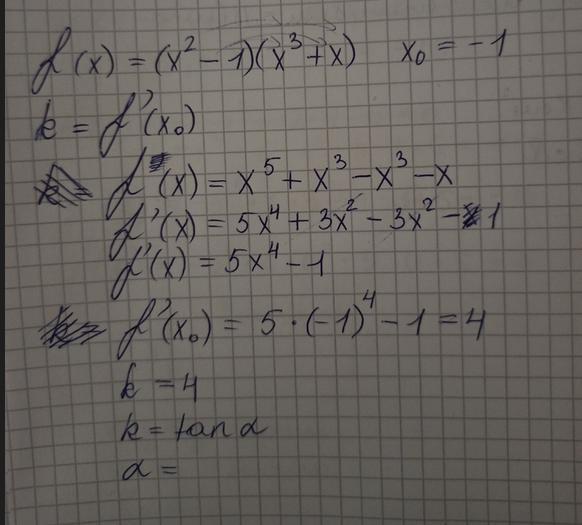 f(x) = (x² - 1)(x³ + x) x₀ = -1
k = f'(x₀)
f(x) = x⁵ + x³ - x³ - x
f'(x) = 5x⁴ + 3x² - 3x² - 1
f'(x) = 5x⁴ - 1
f'(x₀) = 5 · (-1)⁴ - 1 = 4
k = 4
k = tan α
α =